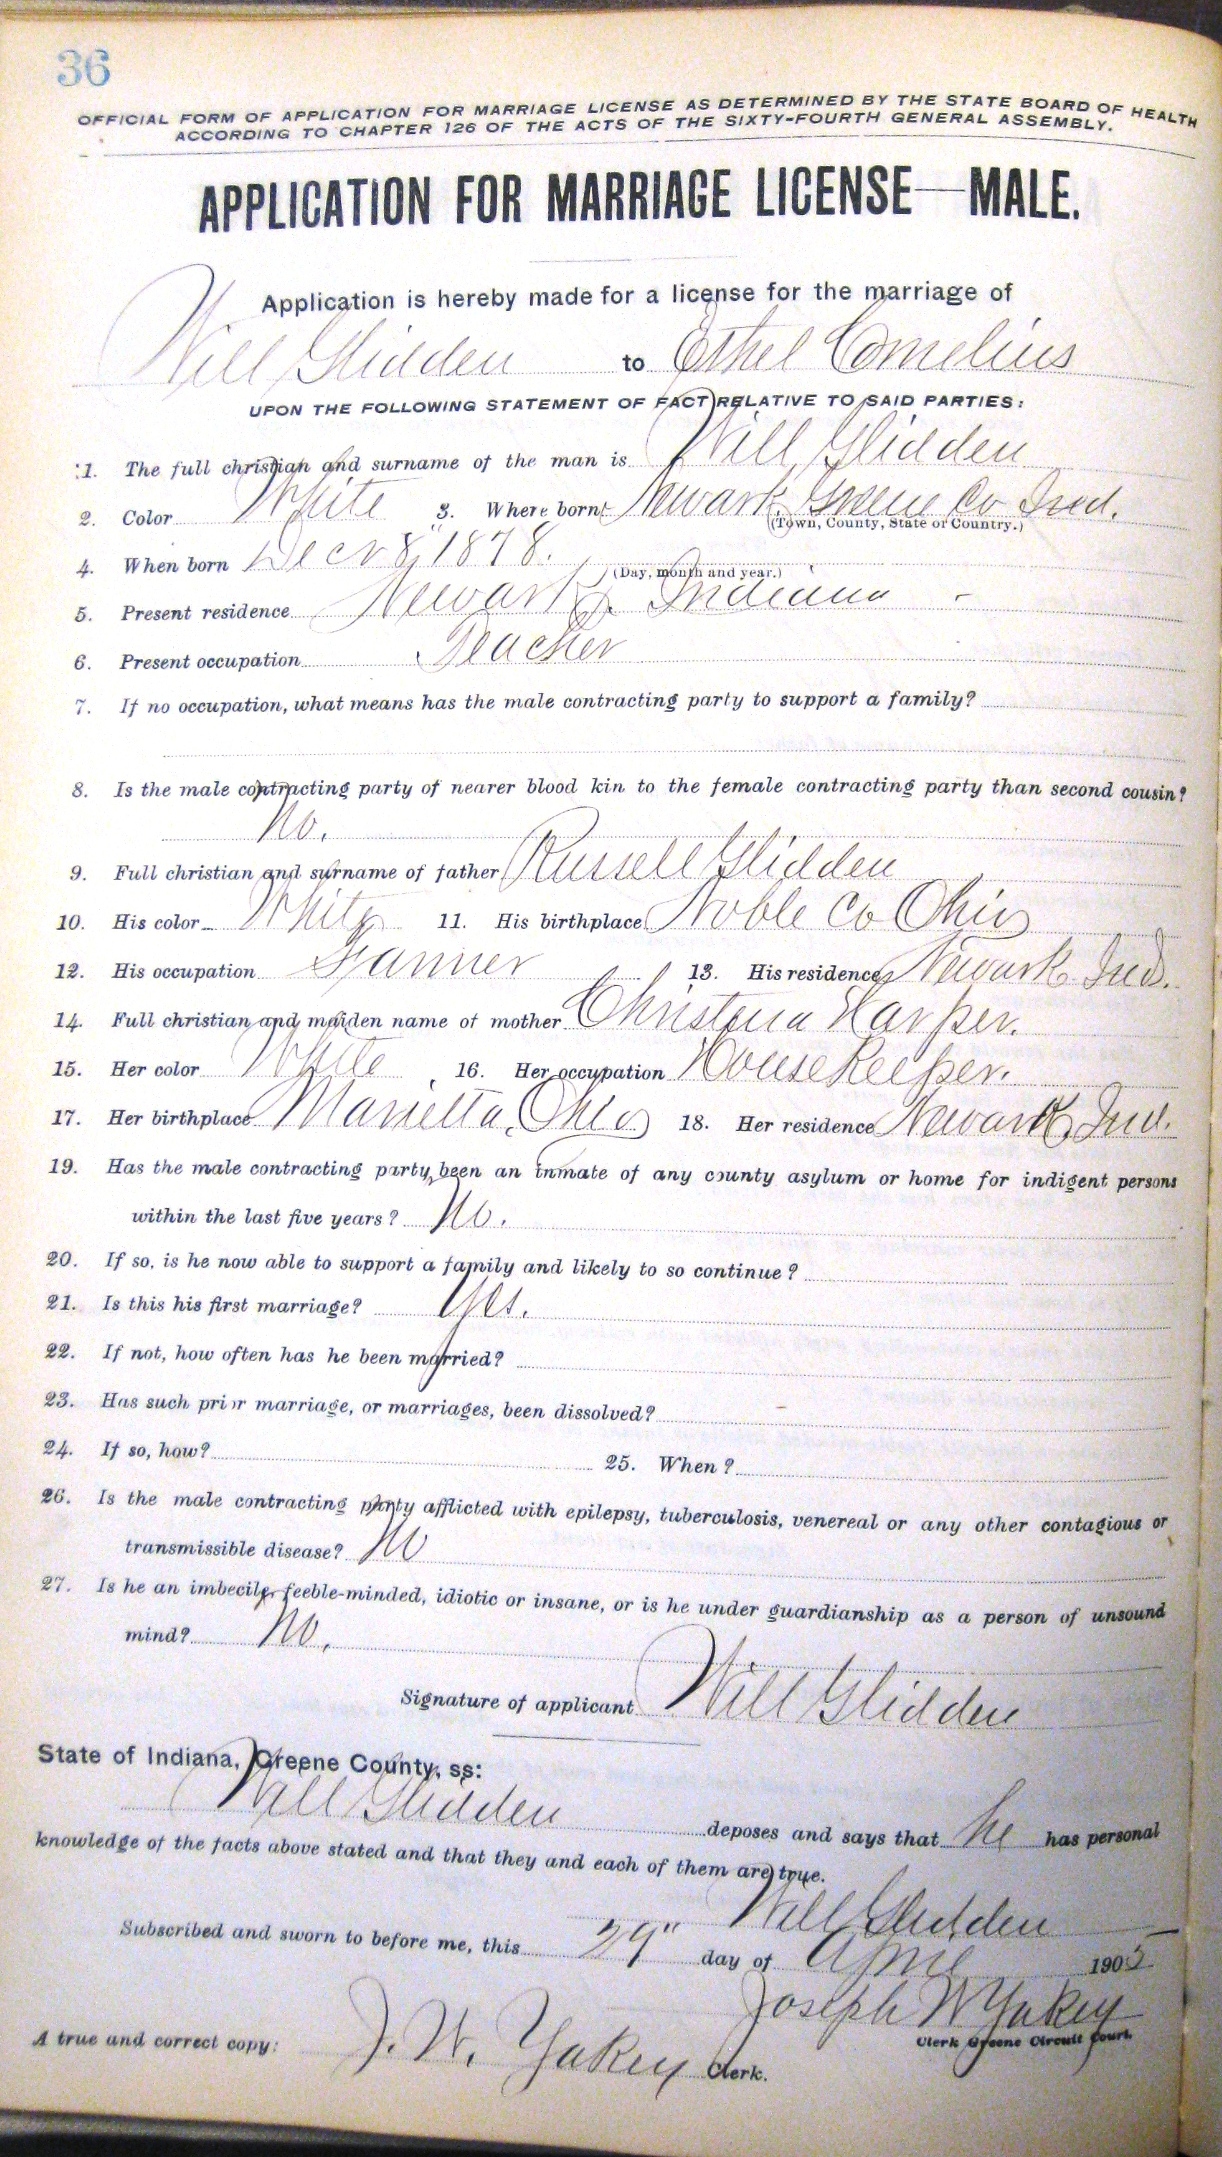 36
OFFICIAL FORM OF APPLICATION FOR MARRIAGE LICENSE AS DETERMINED BY THE STATE BOARD OF HEALTH
ACCORDING TO CHAPTER 126 OF THE ACTS OF THE SIXTY-FOURTH GENERAL ASSEMBLY.
APPLICATION FOR MARRIAGE LICENSE—MALE.
Application is hereby made for a license for the marriage of
Will Glidden to Ethel Cornelius
UPON THE FOLLOWING STATEMENT OF FACT RELATIVE TO SAID PARTIES:
1. The full christian and surname of the man is Will Glidden
2. Color White 3. Where born? Newark, Greene Co Ind.
(Town, County, State or Country.)
4. When born Decr 8" 1878.
(Day, month and year.)
5. Present residence Newark, Indiana
6. Present occupation Teacher
7. If no occupation, what means has the male contracting party to support a family?
8. Is the male contracting party of nearer blood kin to the female contracting party than second cousin?
No.
9. Full christian and surname of father Russell Glidden
10. His color White 11. His birthplace Noble Co Ohio
12. His occupation Farmer 13. His residence Newark Ind.
14. Full christian and maiden name of mother Christena Harper.
15. Her color White 16. Her occupation Housekeeper.
17. Her birthplace Marietta, Ohio 18. Her residence Newark, Ind.
19. Has the male contracting party been an inmate of any county asylum or home for indigent persons
within the last five years? No.
20. If so, is he now able to support a family and likely to so continue?
21. Is this his first marriage? Yes.
22. If not, how often has he been married?
23. Has such prior marriage, or marriages, been dissolved?
24. If so, how? 25. When?
26. Is the male contracting party afflicted with epilepsy, tuberculosis, venereal or any other contagious or
transmissible disease? No
27. Is he an imbecile, feeble-minded, idiotic or insane, or is he under guardianship as a person of unsound
mind? No.
Signature of applicant Will Glidden
State of Indiana, Greene County, ss:
Will Glidden deposes and says that he has personal
knowledge of the facts above stated and that they and each of them are true.
Will Glidden
Subscribed and sworn to before me, this 29" day of April 1905
Joseph W Yakey
Clerk Greene Circuit Court.
A true and correct copy: J. W. Yakey Clerk.